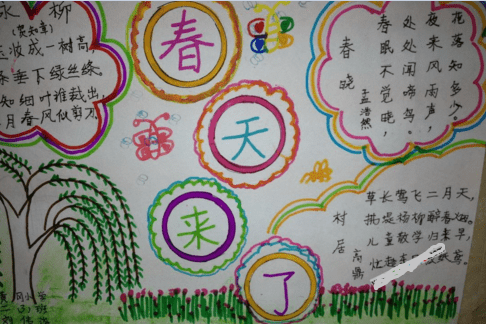 柳
(贺知章)
成一树高
条垂下绿丝绦
知细叶谁裁出,
月春风似剪刀
春
天
来
了
春晓
孟浩然
春眠不觉晓,
处处闻啼鸟。
夜来风雨声,
花落知多少。
村居
高鼎
草长莺飞二月天,
拂堤杨柳醉春烟。
儿童散学归来早,
忙趁东 纸鸢。